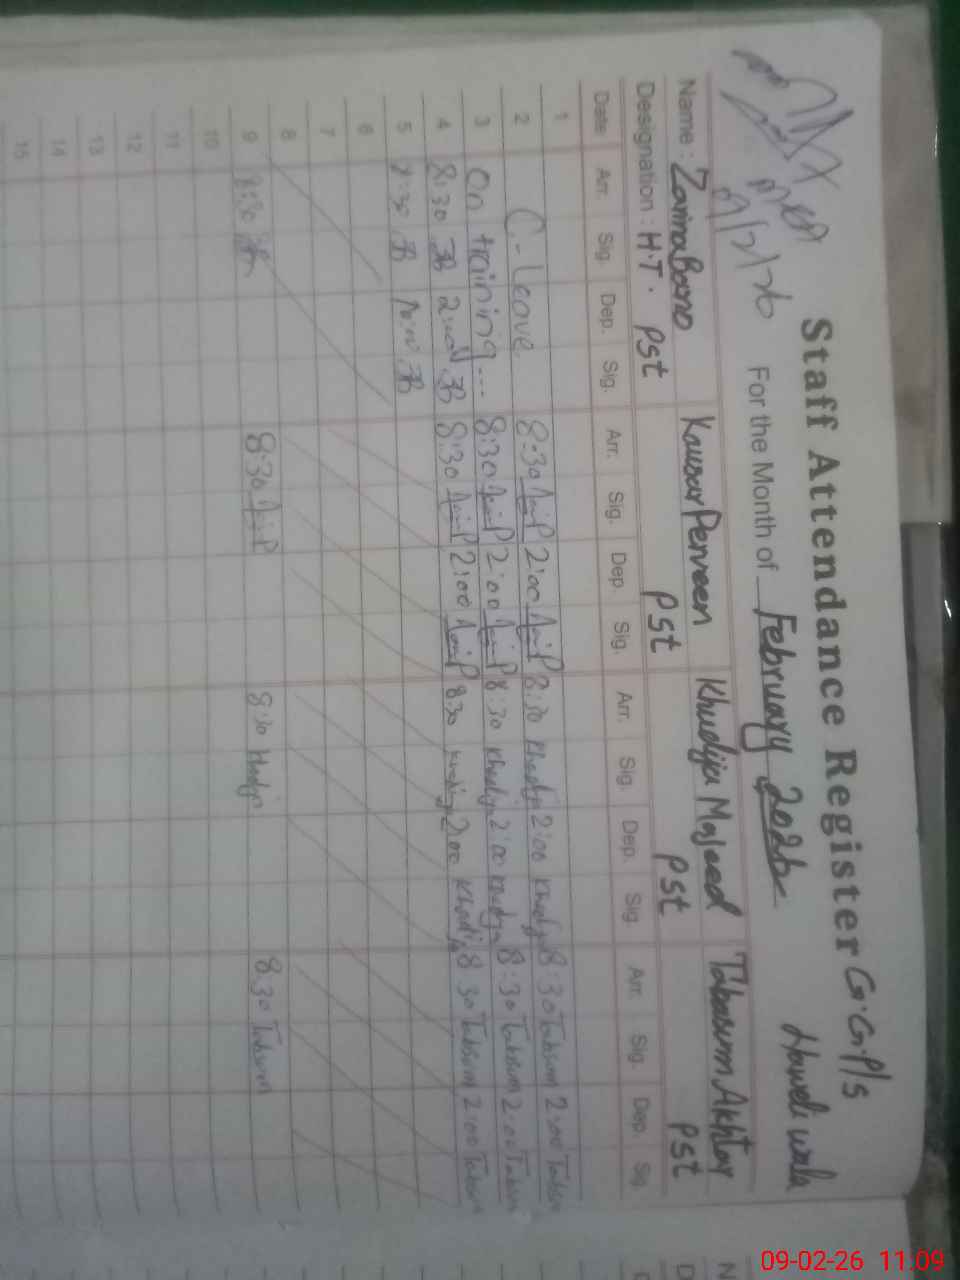 Staff Attendance Register G.G.P/S
Haweli wala
For the Month of February 2026
9/2/26
Name: Zarina Bano Kausar Perveen Khudija Majeed Tabasum Akhtar
Designation: H.T. Pst Pst Pst Pst
Date Arr. Sig. Dep. Sig. Arr. Sig. Dep. Sig. Arr. Sig. Dep. Sig. Arr. Sig. Dep. Sig.
1
2 C-Leave 8:30 2:00 8:30 Khudija 2:00 Khudija 8:30 Tabsum 2:00 Tabsum
3 On training... 8:30 2:00 8:30 Khudija 2:00 Khudija 8:30 Tabsum 2:00 Tabsum
4 8:30 ZB 2:00 ZB 8:30 2:00 8:30 Khudija 2:00 Khudija 8:30 Tabsum 2:00 Tabsum
5 8:30 ZB ZB
6
7
8
9 8:30 ZB 8:30 8:30 Hadija 8:30 Tabsum
10
11
12
13
14
15
09-02-26 11:09